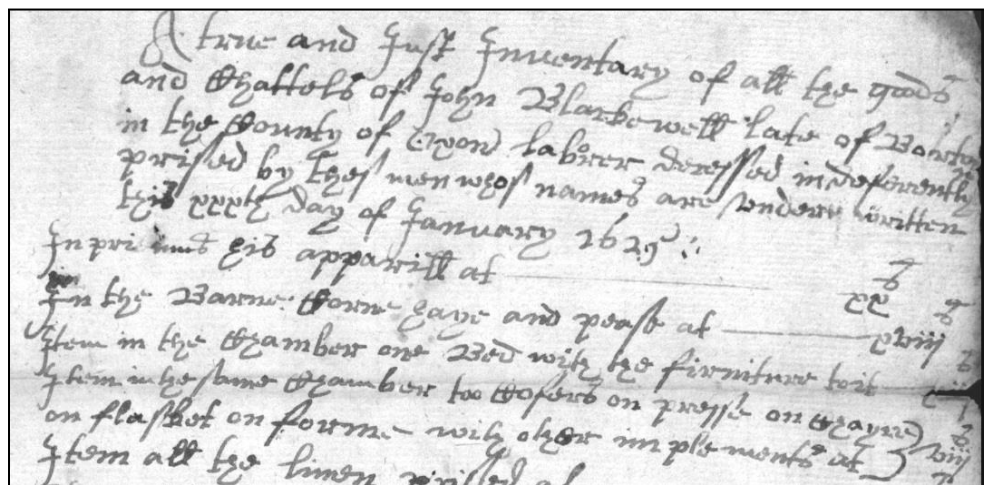 A true and Just Inventary of all the goods
and Chattels of John Blackewell late of Borton
in the County of Oxon labrer decessed indeferently
prised by thes men whos names are vnder written
this xxxth day of January 1629
In primus his apparill at xx s
In the Barne Corne haye and pease at xlviij s
Item in the Chamber one Bed with the firniture toit s
Item in the same Chamber too Cofers on presse on Chayre
on flasket on forme with other implements at viij s
Item all the linen prissed at